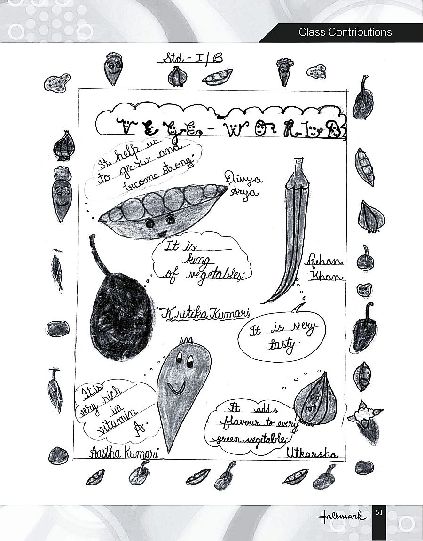 Class Contributions
Std - I/B
VEGE-WORLD
It help us
to grow and
become strong
Divya
Arya
It is
king
of vegetables
Rehan
Khan
Kritika Kumari
It is very
tasty
It is
very rich
in
vitamin
A
It adds
flavour to every
green vegetables
Aastha Kumari
Utkarsha
Hallmark